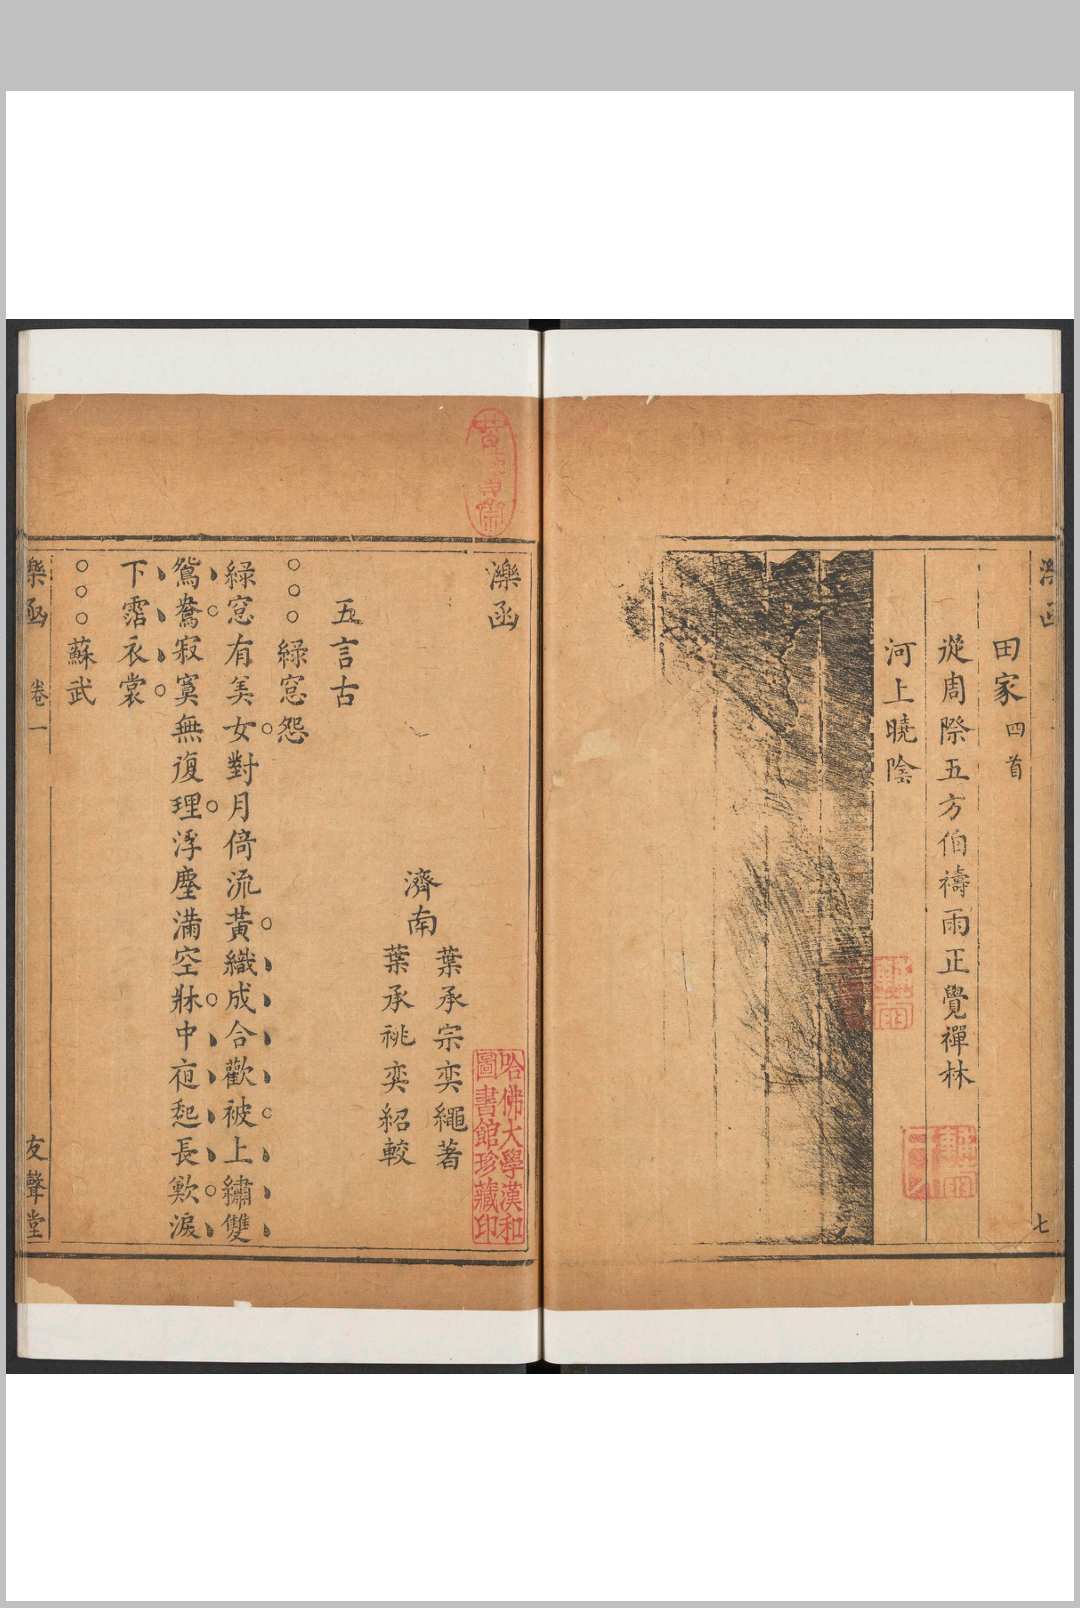 田家四首
從周際五方伯禱雨正覺禪林
河上曉陰
七
濼函
五言古
濟南
葉承宗奕繩著
葉承祧奕紹較
綠窓怨
綠窓有美女對月倚流黃織成合歡被上繡雙
鴛鴦寂寞無復理浮塵滿空牀中夜起長歎淚
下霑衣裳
蘇武
濼函 卷一 友聲堂
哈佛大學漢和
圖書館珍藏印